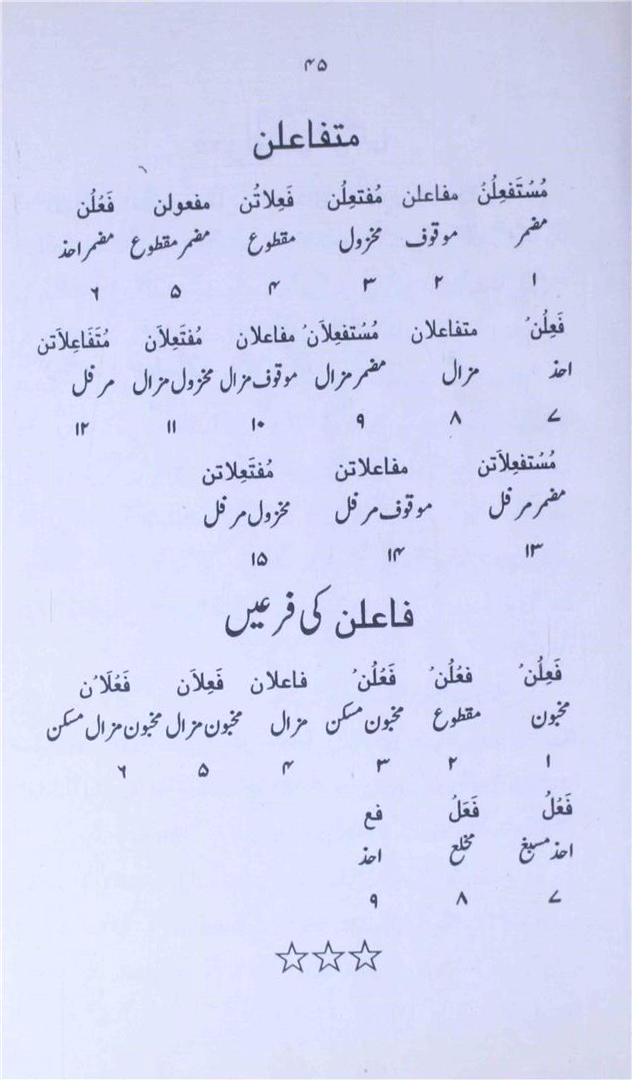 ۴۵
متفاعلن
مُسْتَفعِلُنْ مفاعلن مُفتعِلُن فَعِلاتُن مفعولن فَعْلُن
مضمر موقوف مخزول مقطوع مضمر مقطوع مضمر احذ
۱ ۲ ۳ ۴ ۵ ۶
فَعِلُنْ متفاعلان مُسْتفعِلاَنْ مفاعلان مُفتَعِلاَن مُتَفَاعِلاَتن
احذ مزال مضمر مزال موقوف مزال مخزول مزال مرفل
۷ ۸ ۹ ۱۰ ۱۱ ۱۲
مُسْتَفعِلاَتن مفاعلاتن مُفتَعِلاتن
مضمر مرفل موقوف مرفل مخزول مرفل
۱۳ ۱۴ ۱۵
فاعلن کی فرعیں
فَعِلُنْ فعْلُنْ فَعْلُنْ فاعلان فَعِلاَن فَعْلَانْ
مخبون مقطوع مخبون مسکن مزال مخبون مزال مخبون مزال مسکن
۱ ۲ ۳ ۴ ۵ ۶
فَعْلُ فَعَلُ فع
احذ مسبغ مخلع احذ
۷ ۸ ۹